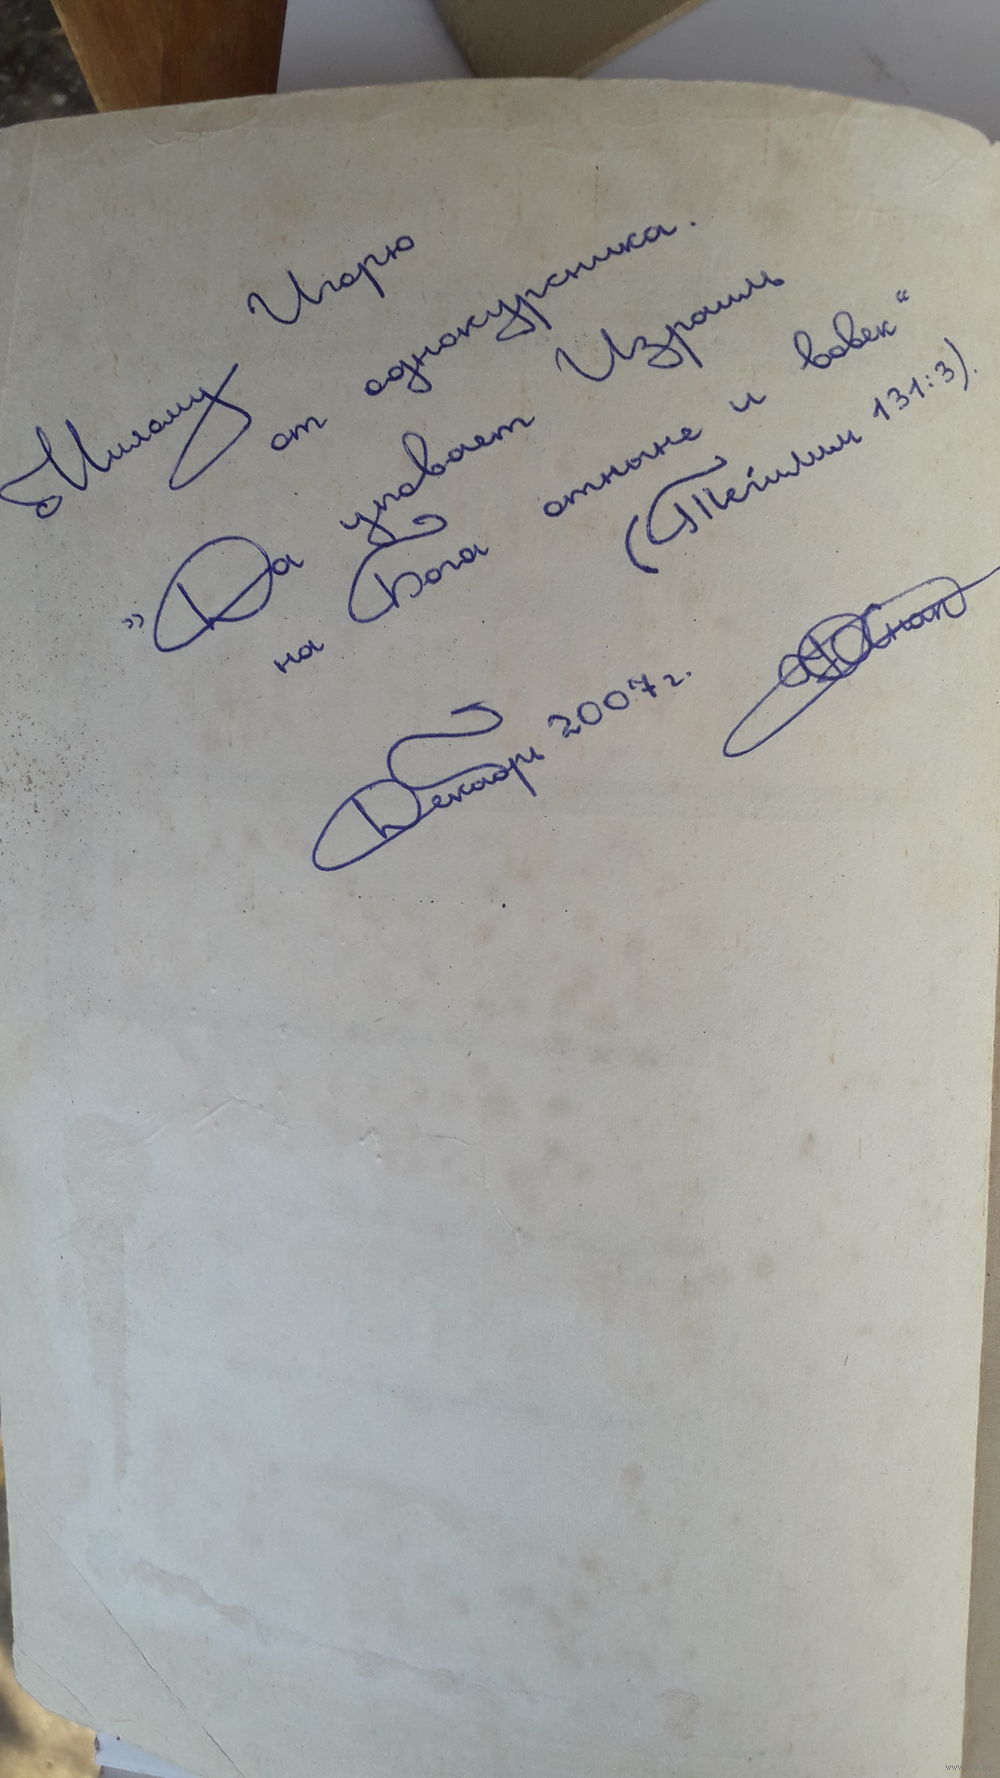 Милому Игорю
от однокурсника.
„Да уповает Израиль
на Бога отныне и вовек“
(Тегилим 131:3).
Декабрь 2007 г.